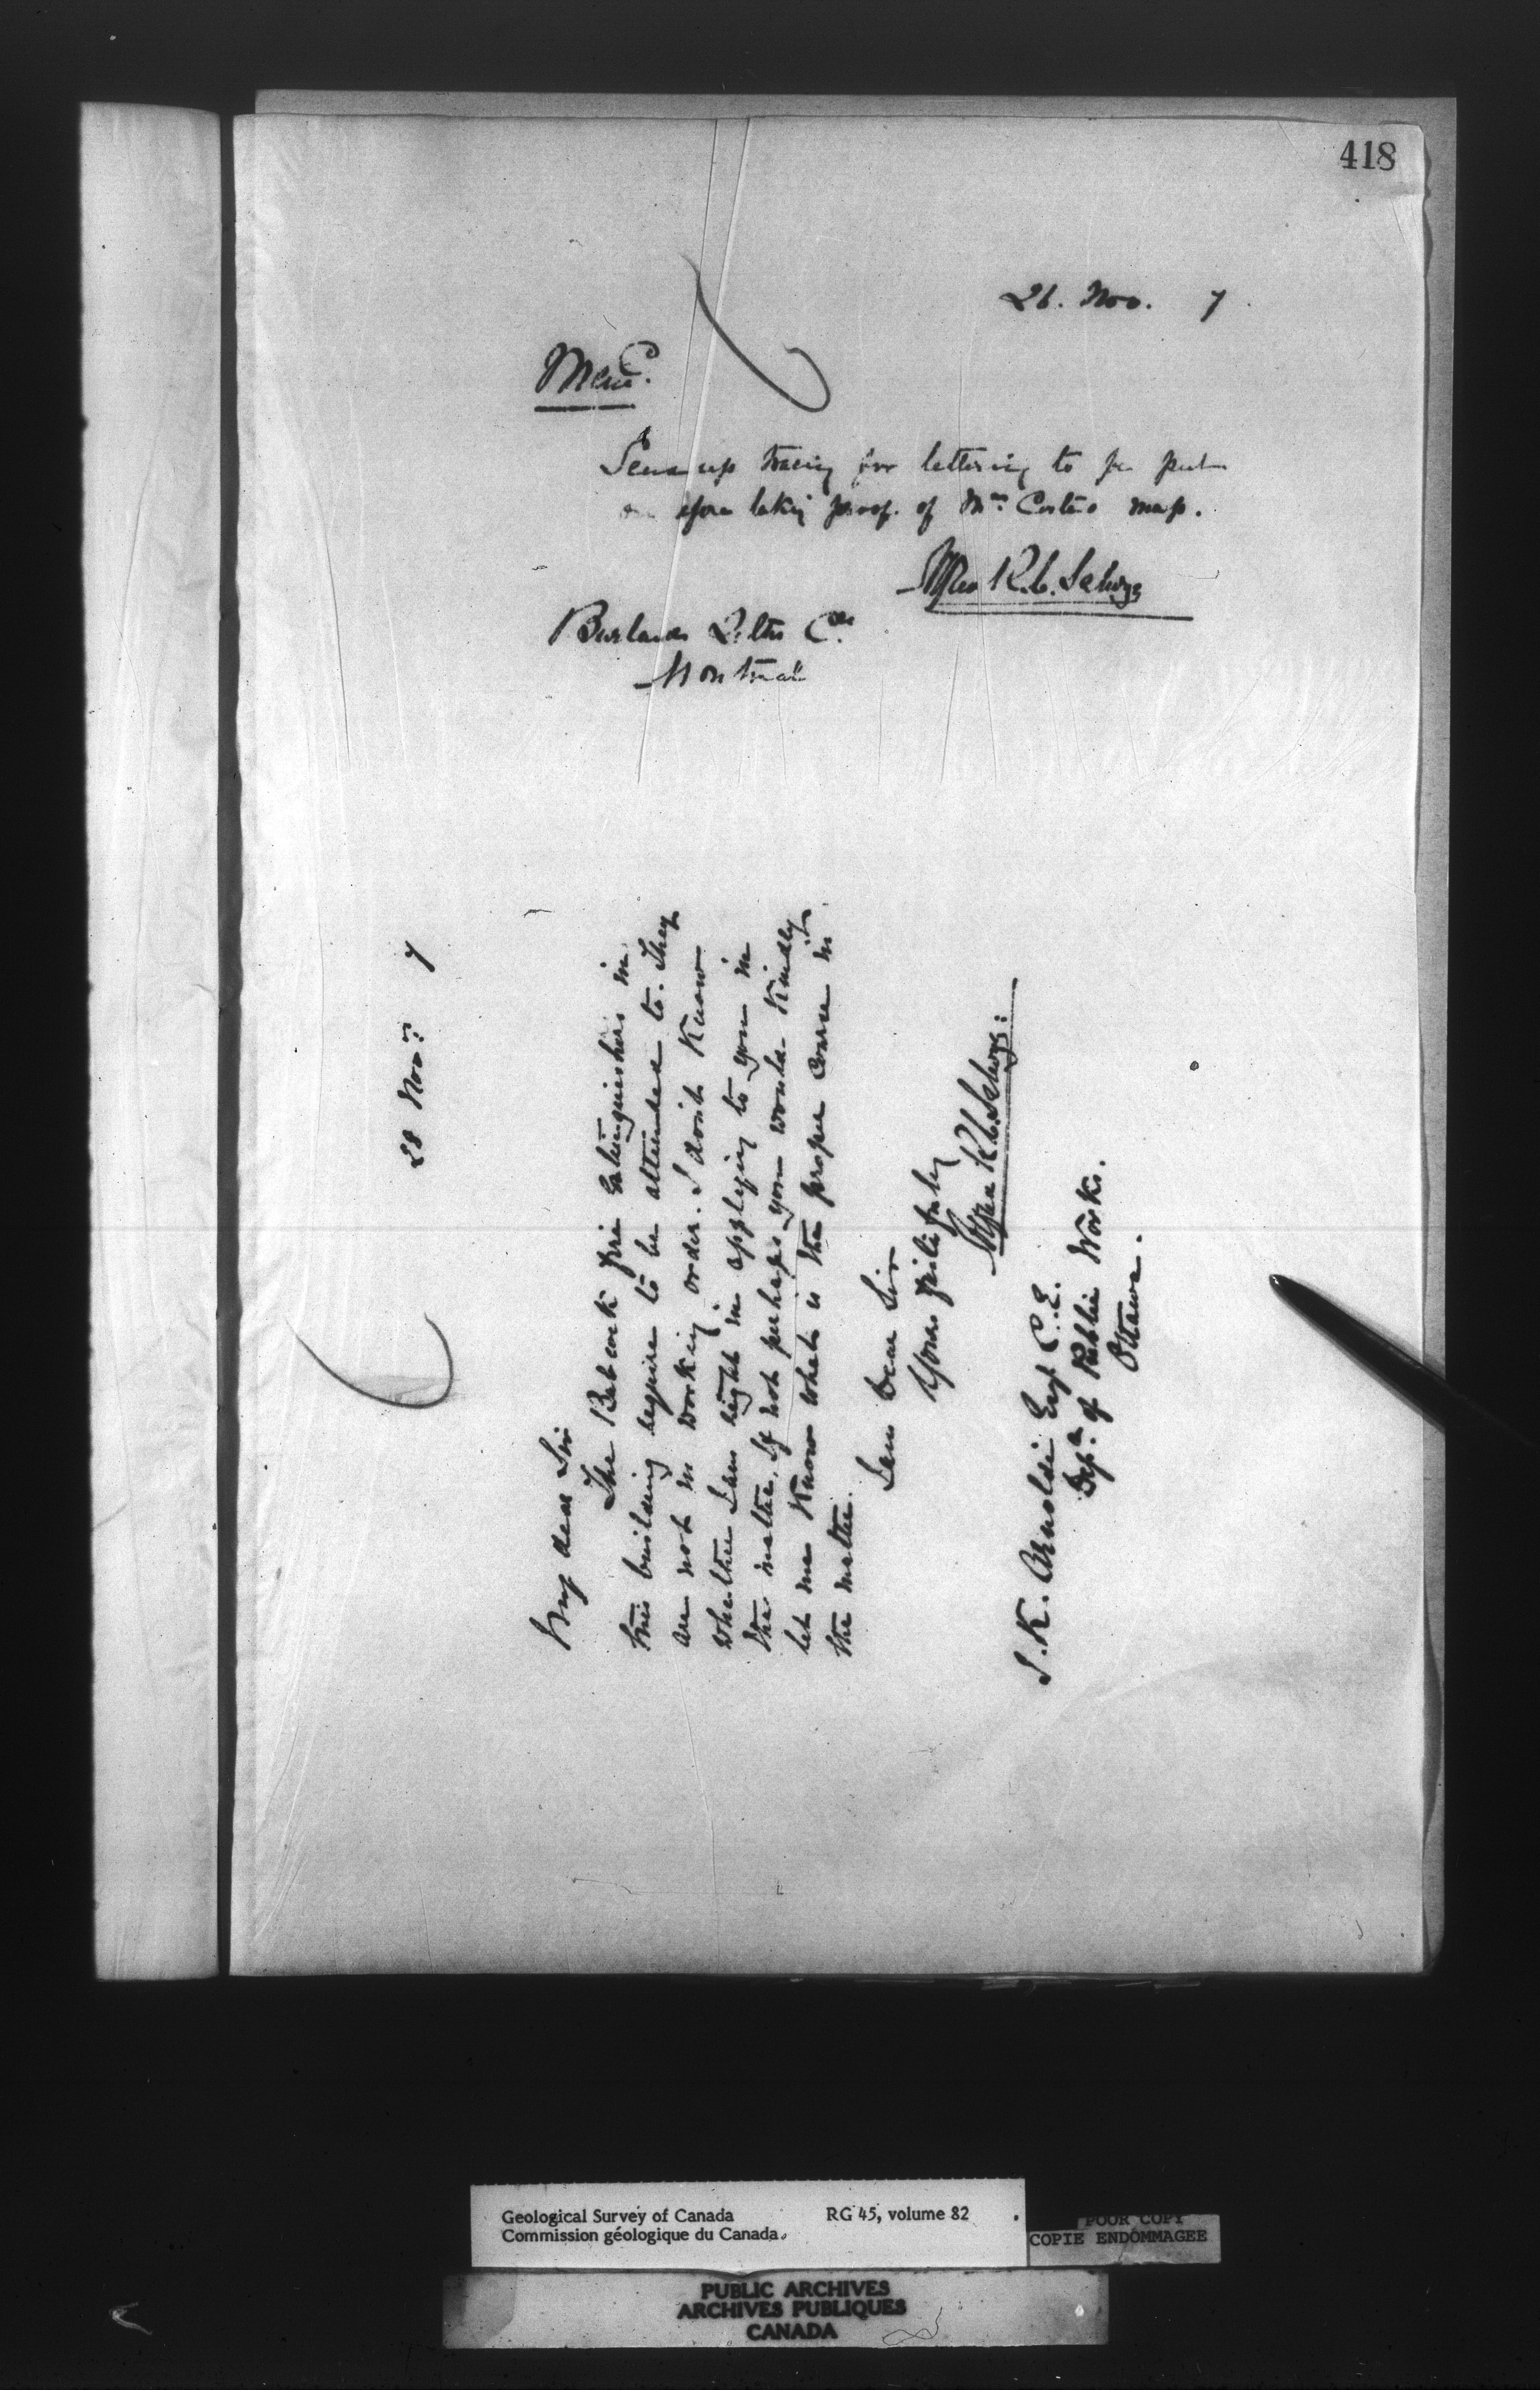 418
26. Nov. 7
Memo.
Send up tracing for lettering to be put
on before taking proof. of Mr. Costes map.
Alfred R. C. Selwyn
Burlands Litho Co.
Montreal
28 Nov: 7
My dear Sir
The Babcock fire Extinguishers in
this building require to be attended to. They
are not in working order. I dont Know
whether I am right in applying to you in
the matter. If not perhaps you would kindly
let me Know what is the proper course in
the matter.
I am Dear Sir
Yours faithfully
Alfred R. C. Selwyn:
J. K. Arnoldi Esq C. E.
Dept. of Public Works.
Ottawa.
Geological Survey of Canada RG 45, volume 82
Commission géologique du Canada.
POOR COPY
COPIE ENDOMMAGEE
PUBLIC ARCHIVES
ARCHIVES PUBLIQUES
CANADA